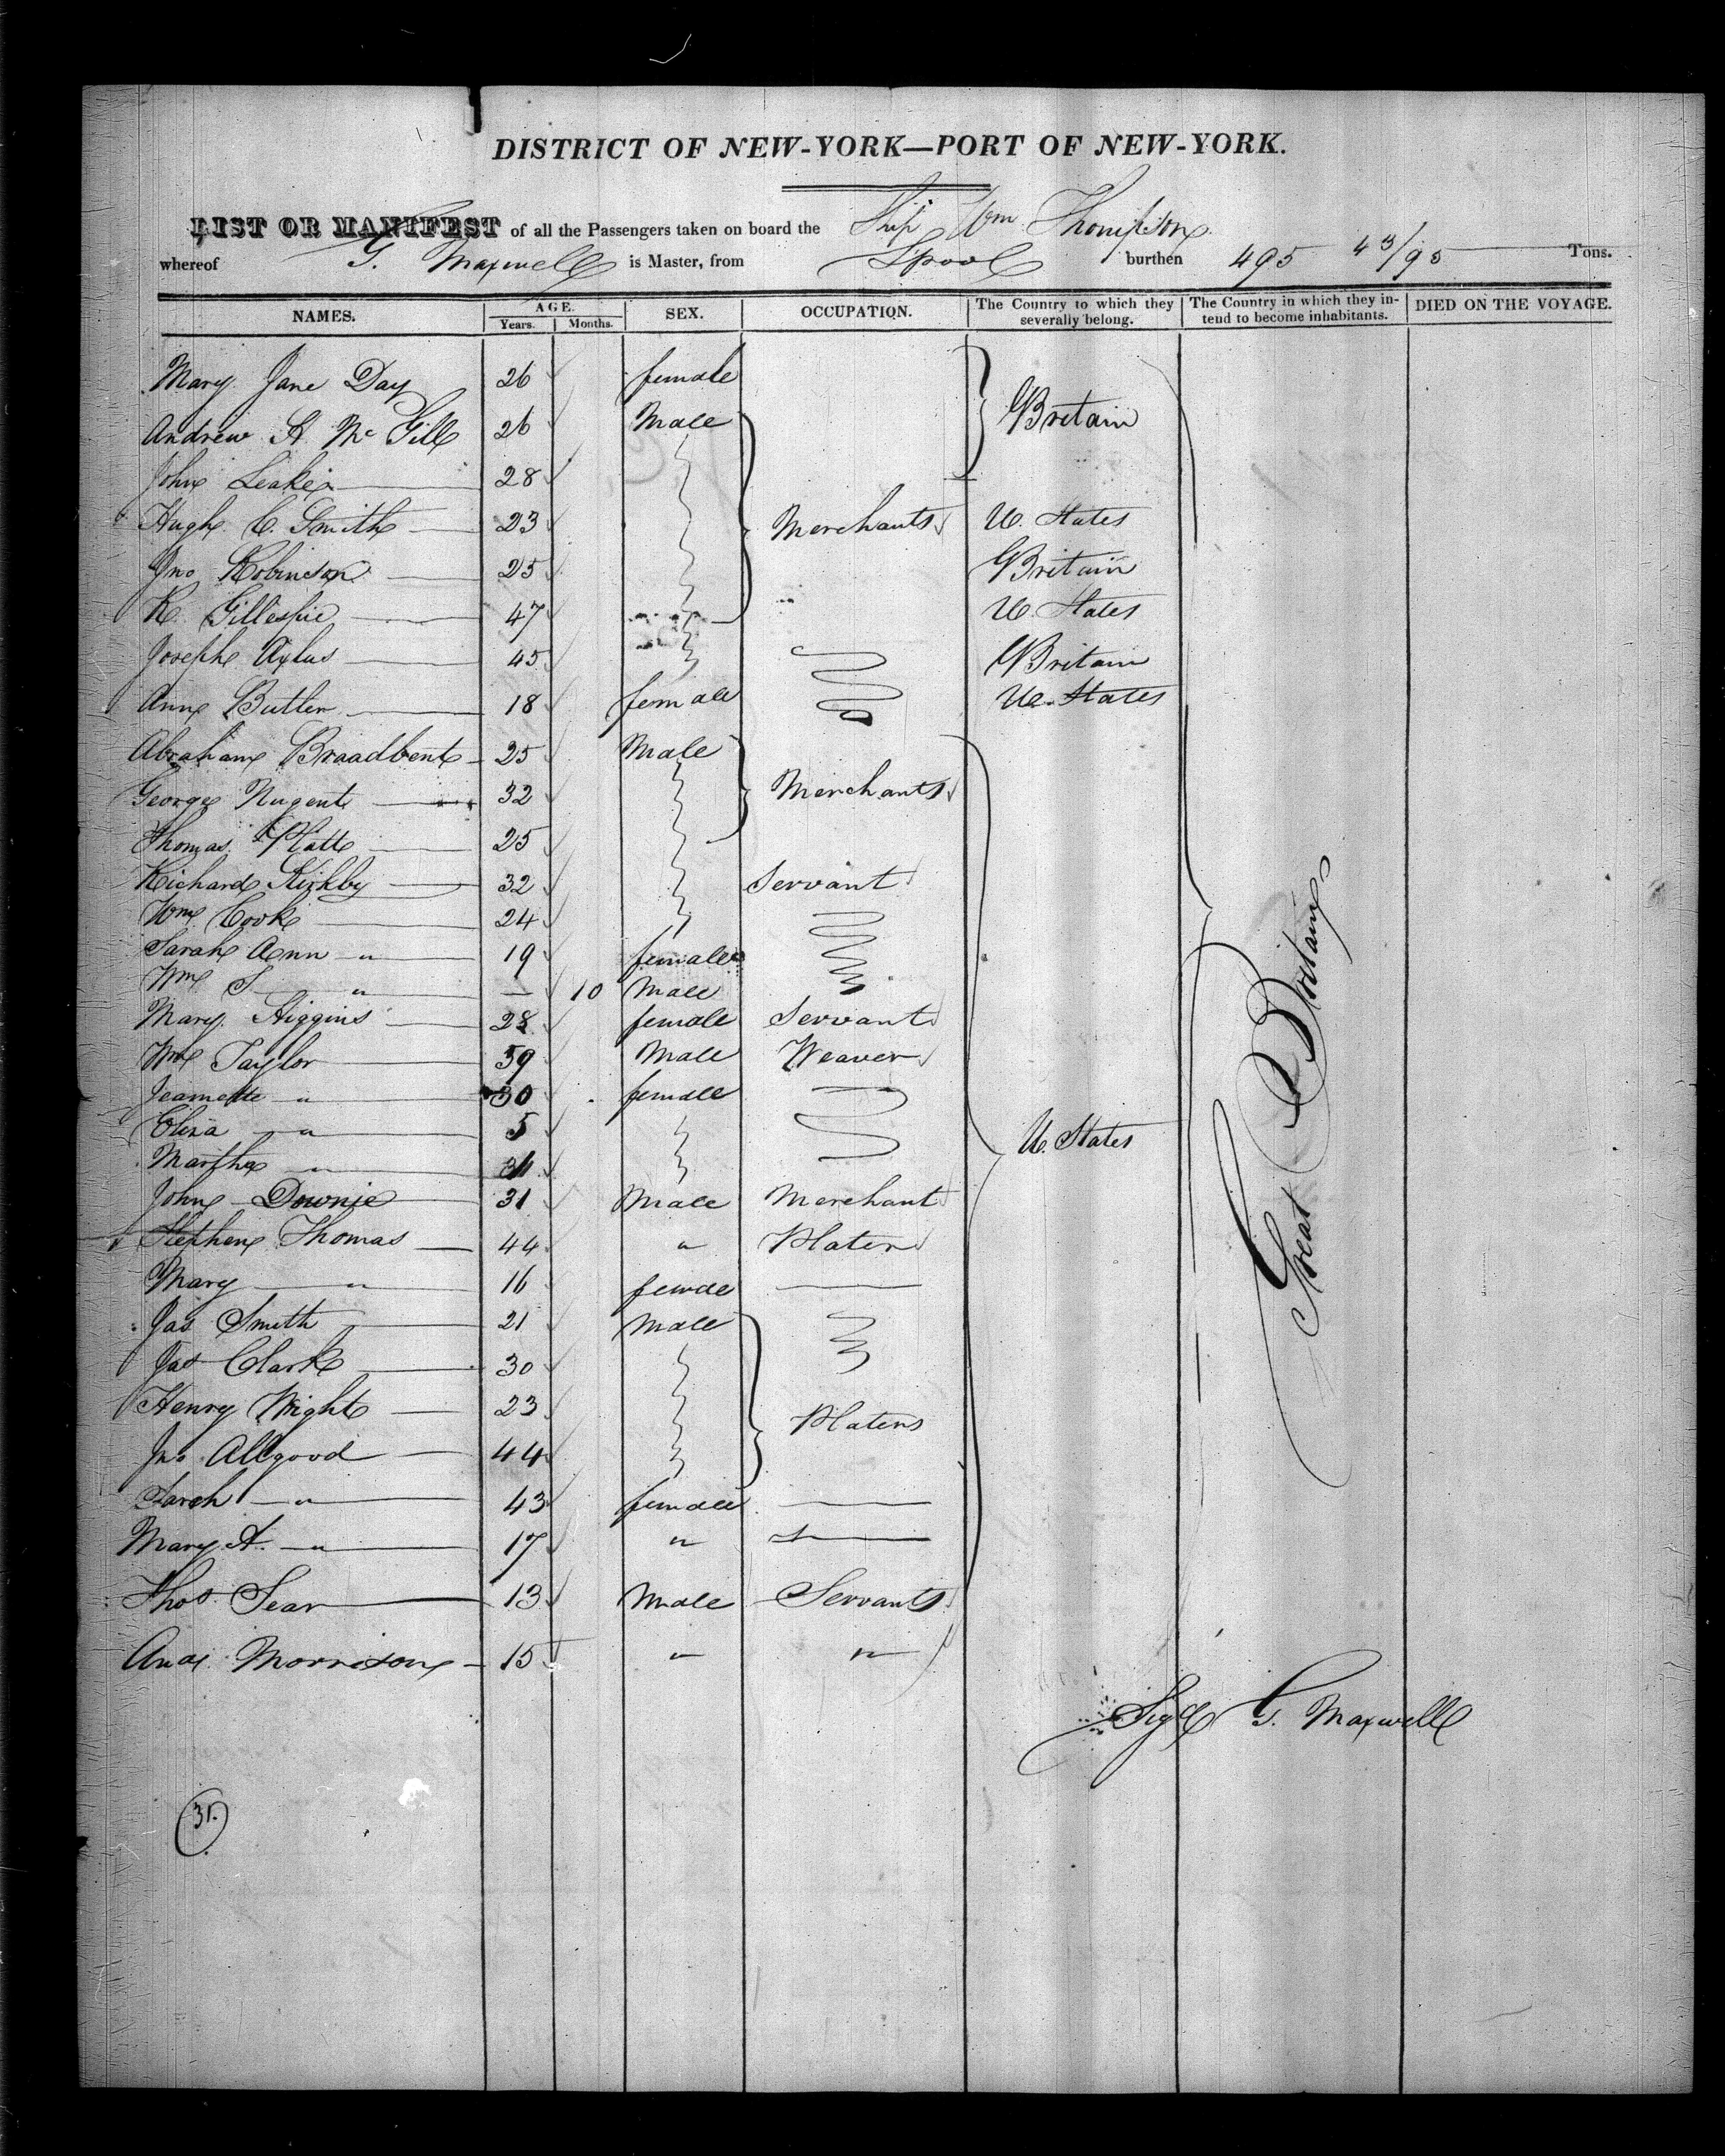 DISTRICT OF NEW-YORK—PORT OF NEW-YORK.
LIST OR MANIFEST of all the Passengers taken on board the Ship Wm Thompson
whereof G. Maxwell is Master, from Lpool burthen 495 43/95 Tons.
NAMES. AGE. SEX. OCCUPATION. The Country to which they severally belong. The Country in which they intend to become inhabitants. DIED ON THE VOYAGE.
Years. Months.
Mary Jane Day 26 female
Andrew H Mc Gill 26 Male Britain
John 28
Hugh C. Smith 23 Merchants U. States
Jno Robinson 25 Britain
R. Gillespie 47 U. States
Joseph 45 Britain
Ann Butler 18 female U. States
Abraham Broadbent 25 Male
George Nugent 32 Merchants
Thomas Platt 25
Richard Kirkby 32 Servant
Wm Cook 24
Sarah Ann " 19 female
Wm S " — 10 Male
Mary Higgins 28 female Servant
Wm Taylor 39 Male Weaver
Jeannette " 30 female
Eliza " 5 U. States
Martha "
John Downie 31 Male Merchant
Stephen Thomas 44 " Plater
Mary " 16 female
Jas Smith 21 Male
Jas Clark 30
Henry Wright 23 Platers
Jno Allgood 44
Sarah " 43 female
Mary A. " 17 "
Thos Sear 13 Male Servants
Morrison 15 " "
Great Britain
Sigd G. Maxwell
31.